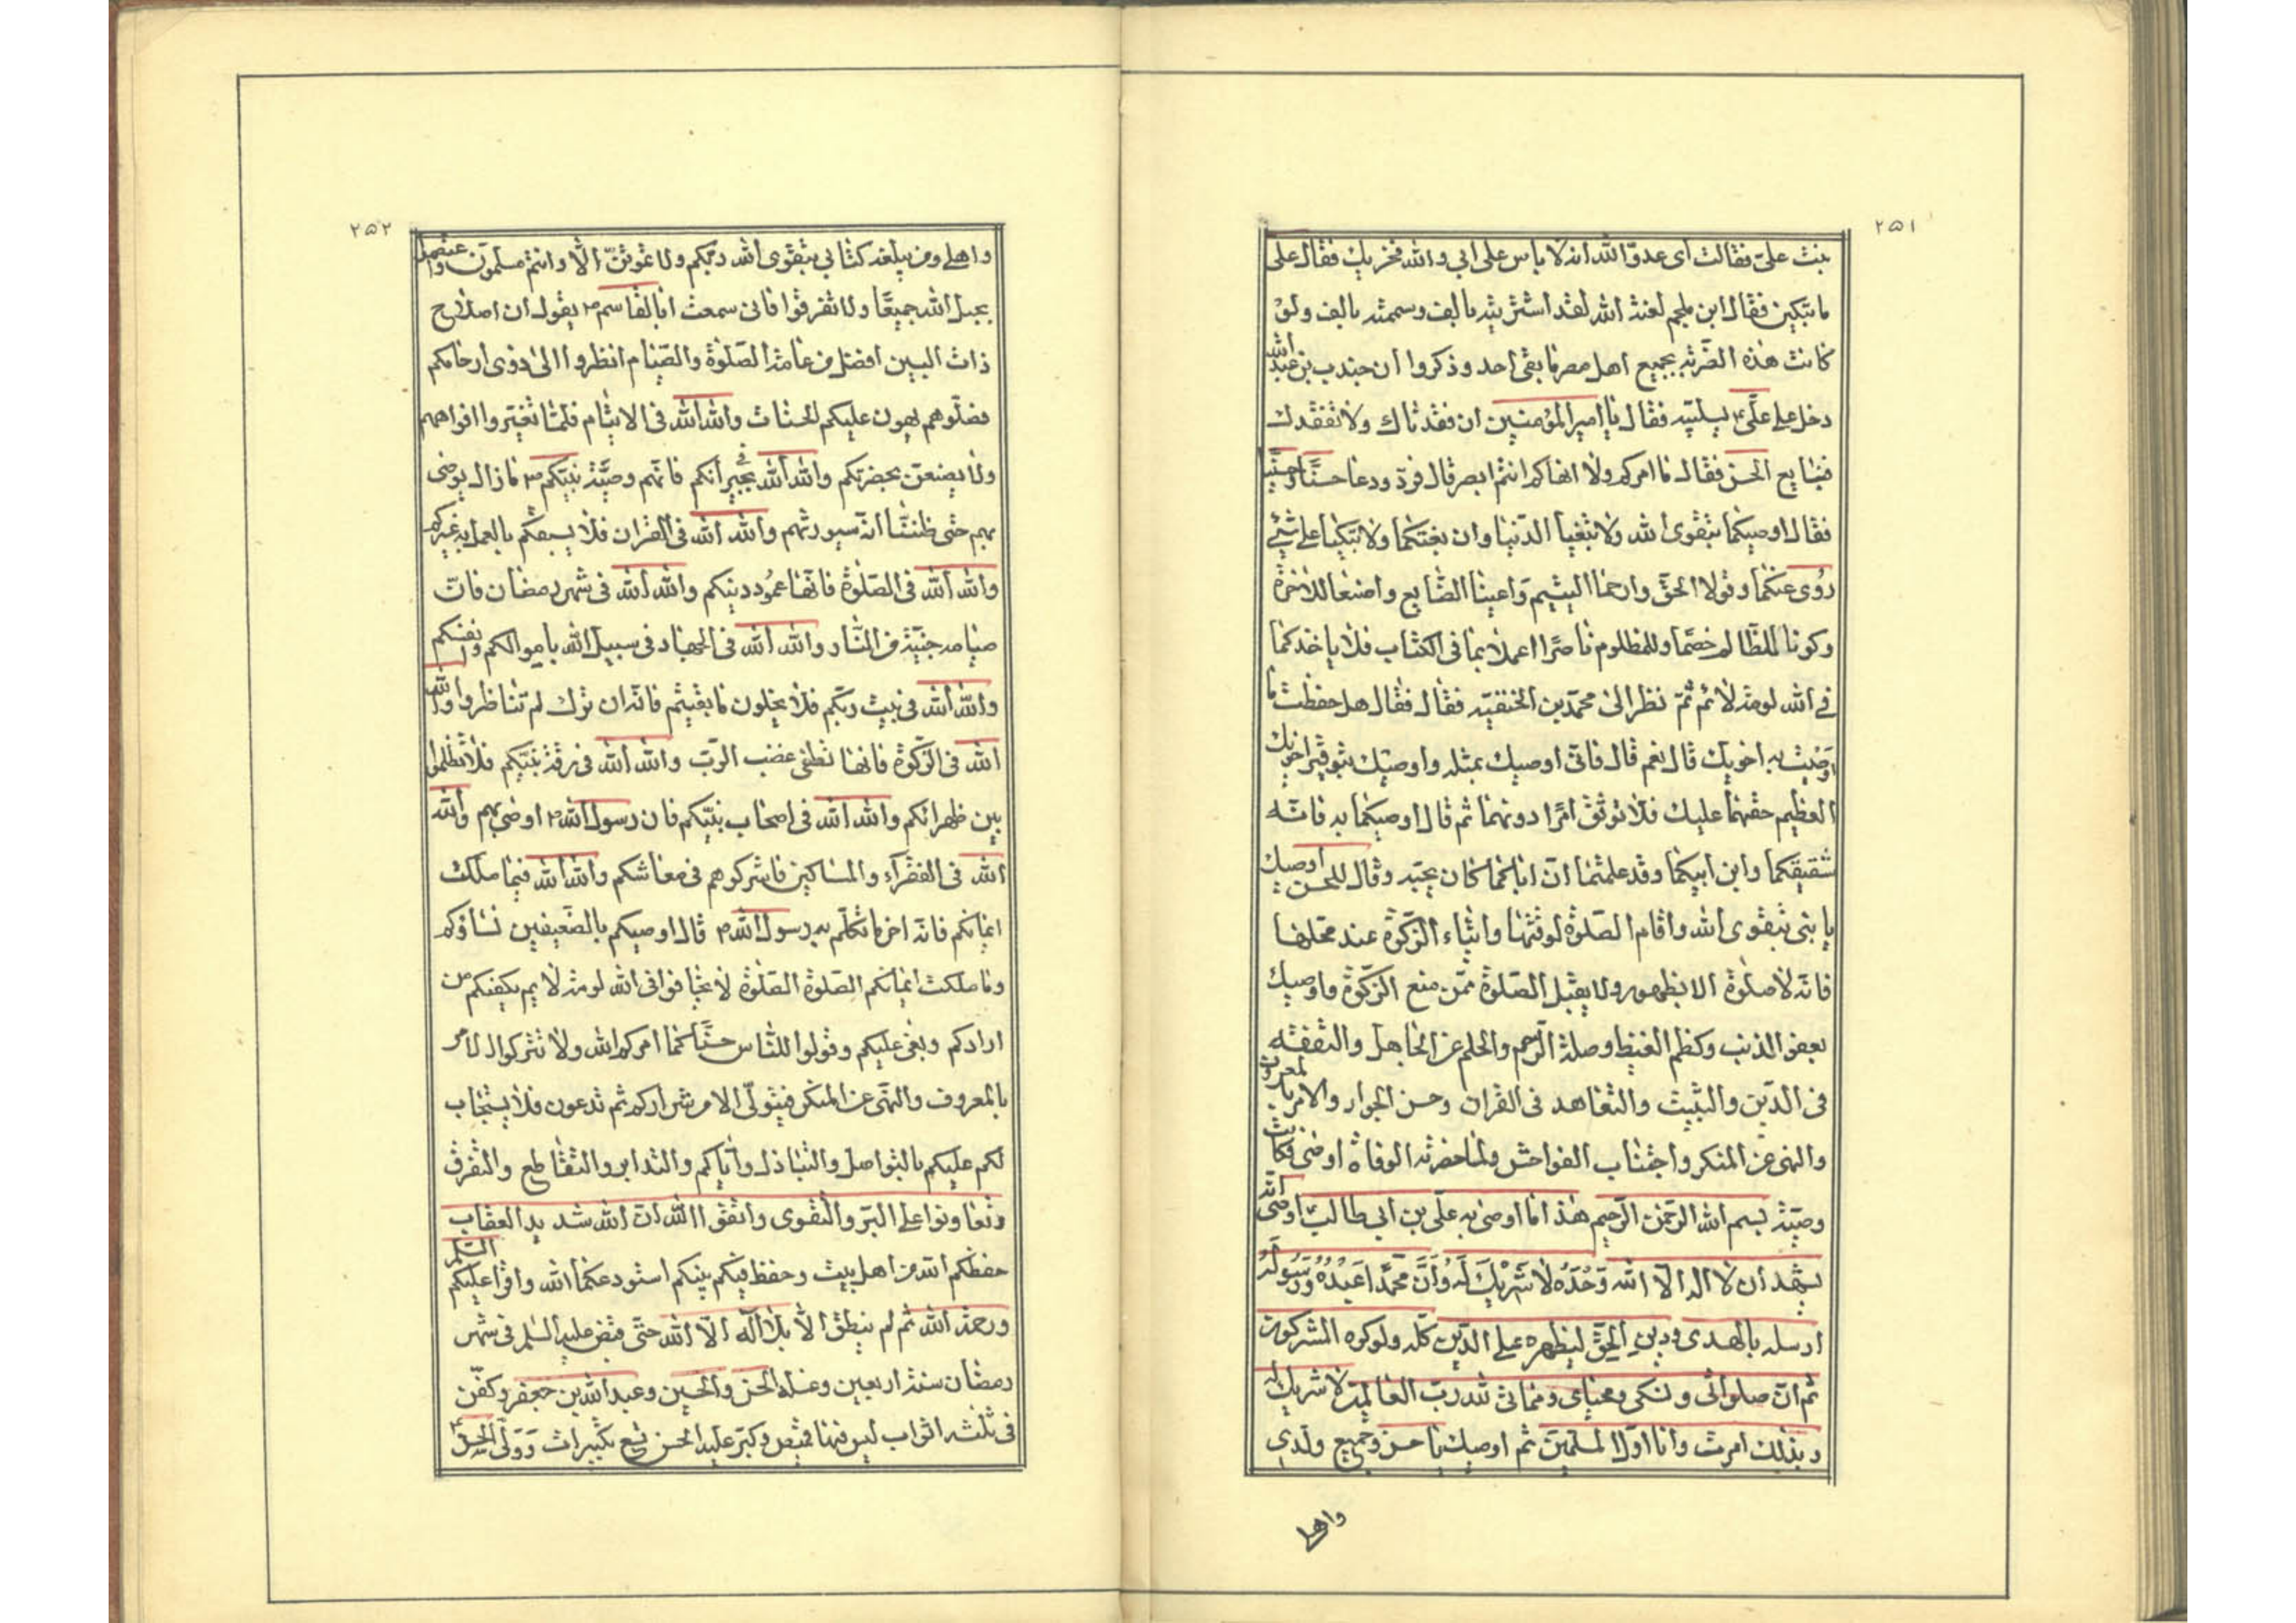 ۲۵۱
بنت علیّ فقالت ای عدوّ الله انه لا باس علی ابی و الله مخزیك فقال علی
ما تبکین فقال ابن ملجم لعنه الله لقد اشتریته بالف و سممته بالف ولو
کانت هذه الضربه بجمیع اهل مصر ما بقی احد و ذکروا ان جندب بن عبد الله
دخل علی علیّ ع یسلیه فقال یا امیر المؤمنین ان فقدناك ولا نفقدك
فنبایع الحسن فقال ما امرکم ولا انهاکم انتم ابصر قال فردّ ودعا حسنًا و حسینًا
فقال اوصیکما بتقوی الله ولا تبغیا الدّنیا وان بغتکما ولا تبکیا علی شیئ
زوی عنکما وقولا الحقّ وارحما الیتیم و اعینا الضایع واصنعا للاخرة
وکونا للظالم خصمًا وللمظلوم ناصرًا اعملا بما فی الکتاب فلا یاخذکما
فی الله لومة لائم ثمّ نظر الی محمّد بن الحنفیه فقال فقال هل حفظت ما
اوصیت به اخویك قال نعم قال فانّی اوصیك بمثله واوصیك بتوقیر اخویك
العظیم حقهما علیك فلا توثق امرًا دونهما ثم قال اوصیکما به فانّه
شقیقکما وابن ابیکما وقد علمتما انّ اباکما کان یحبّه وقال للحسن اوصیك
یا بنی بتقوی الله واقام الصلوة لوقتها وایتاء الزّکوة عند محلها
فانّه لا صلوة الا بطهور ولا یقبل الصلوة ممّن منع الزّکوة واوصیك
بعفو الذنب وکظم الغیظ وصلة الرّحم والحلم عن الجاهل والتفقّه
فی الدّین والتثبیت والتعاهد فی القران وحسن الجوار والامر بالمعروف
والنهی عن المنکر واجتناب الفواحش ولمّا حضرته الوفاة اوصی فکانت
وصیّته بسم الله الرّحمن الرّحیم هذا ما اوصی به علیّ بن ابی طالب ع اوصی انّه
یشهد ان لا اله الّا الله وَحْدَهُ لا شَرِیكَ لَهُ وَأنَّ محمّدًا عَبْدُهُ وَرَسُولُهُ
ارسله بالهدی ودین الحقّ لیظهره علی الدّین کلّه ولو کره المشرکون
ثم انّ صلواتی ونسکی ومحیای ومماتی لله ربّ العالمین لا شریك له
وبذلك امرت وانا اوّل المسلمین ثم اوصیك یا حسن وجمیع ولدی
واهلی
۲۵۲
واهلی ومن بلغه کتابی بتقوی الله ربّکم ولا تموتنّ الّا وانتم مسلمون واعتصموا
بحبل الله جمیعًا ولا تفرقوا فانی سمعت ابا القاسم ص یقول ان اصلاح
ذات البین افضل من عامة الصّلوة والصّیام انظروا الی ذوی ارحامکم
فصلّوهم یهون علیکم الحساب والله الله فی الایتام فلا تغیّروا افواههم
ولا یضیعنّ بحضرتکم والله الله فی جیرانکم فانّهم وصیّة نبیّکم ص ما زال یوصی
بهم حتی ظننّا انّه سیورثهم والله الله فی القران فلا یسبقکم بالعمل به غیرکم
والله الله فی الصّلوة فانّها عمود دینکم والله الله فی شهر رمضان فانّ
صیامه جنّة من النّار والله الله فی الجهاد فی سبیل الله باموالکم وانفسکم
والله الله فی بیت ربّکم فلا یخلون ما بقیتم فانّه ان ترك لم تناظروا والله
الله فی الزّکوة فانها تطفی غضب الربّ والله الله فی ذمّة نبیّکم فلا تظلموا
بین ظهرانکم والله الله فی اصحاب نبیّکم فان رسول الله ص اوصی بهم والله
الله فی الفقراء والمساکین فاشرکوهم فی معاشکم والله الله فیما ملکت
ایمانکم فانّه اخر ما تکلّم به رسول الله ص قال اوصیکم بالضعیفین نساؤکم
وما ملکت ایمانکم الصّلوة الصّلوة لا تخافوا فی الله لومة لایم یکفکم من
ارادکم وبغی علیکم وقولوا للنّاس حسنًا کما امرکم الله ولا تترکوا الامر
بالمعروف والنهی عن المنکر فیتولّی الامر شرارکم ثم تدعون فلا یستجاب
لکم علیکم بالتواصل والتباذل وایّاکم والتدابر والتقاطع والتفرق
وتعاونوا علی البرّ والتقوی واتقوا الله انّ الله شدید العقاب
حفظکم الله من اهل بیت وحفظ فیکم نبیّکم استودعکم الله واقرا علیکم السّلم
ورحمة الله ثم لم ینطق الا بلا اله الّا الله حتّی قبض علیه السّلم فی شهر
رمضان سنة اربعین وغسله الحسن والحسین وعبد الله بن جعفر وکفّن
فی ثلثة اثواب لیس فیها قمیص وکبّر علیه الحسن تسع تکبیرات وَوَلّی الحسن ع